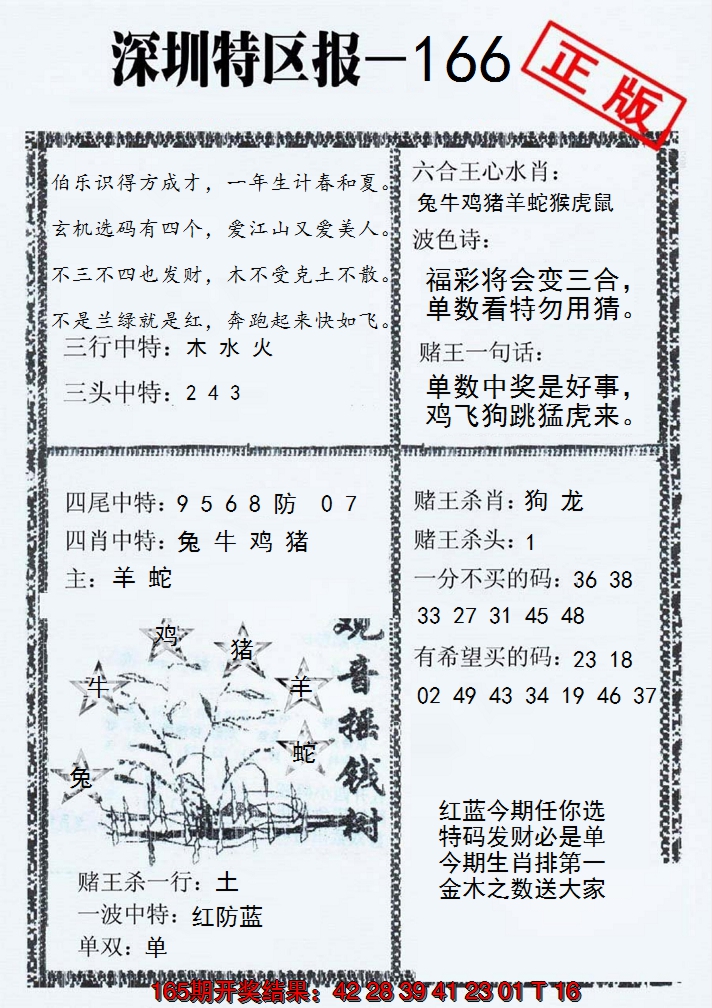 深圳特区报—166
正版
伯乐识得方成才，一年生计春和夏。
玄机选码有四个，爱江山又爱美人。
不三不四也发财，木不受克土不散。
不是兰绿就是红，奔跑起来快如飞。
三行中特：木 水 火
三头中特：2 4 3
六合王心水肖：
兔牛鸡猪羊蛇猴虎鼠
波色诗：
福彩将会变三合，
单数看特勿用猜。
赌王一句话：
单数中奖是好事，
鸡飞狗跳猛虎来。
四尾中特：9 5 6 8 防 0 7
四肖中特：兔 牛 鸡 猪
主：羊 蛇
鸡
猪
牛
羊
蛇
兔
观音摇钱树
赌王杀一行：土
一波中特：红防蓝
单双：单
赌王杀肖：狗 龙
赌王杀头：1
一分不买的码：36 38
33 27 31 45 48
有希望买的码：23 18
02 49 43 34 19 46 37
红蓝今期任你选
特码发财必是单
今期生肖排第一
金木之数送大家
165期开奖结果：42 28 39 41 23 01 T 16